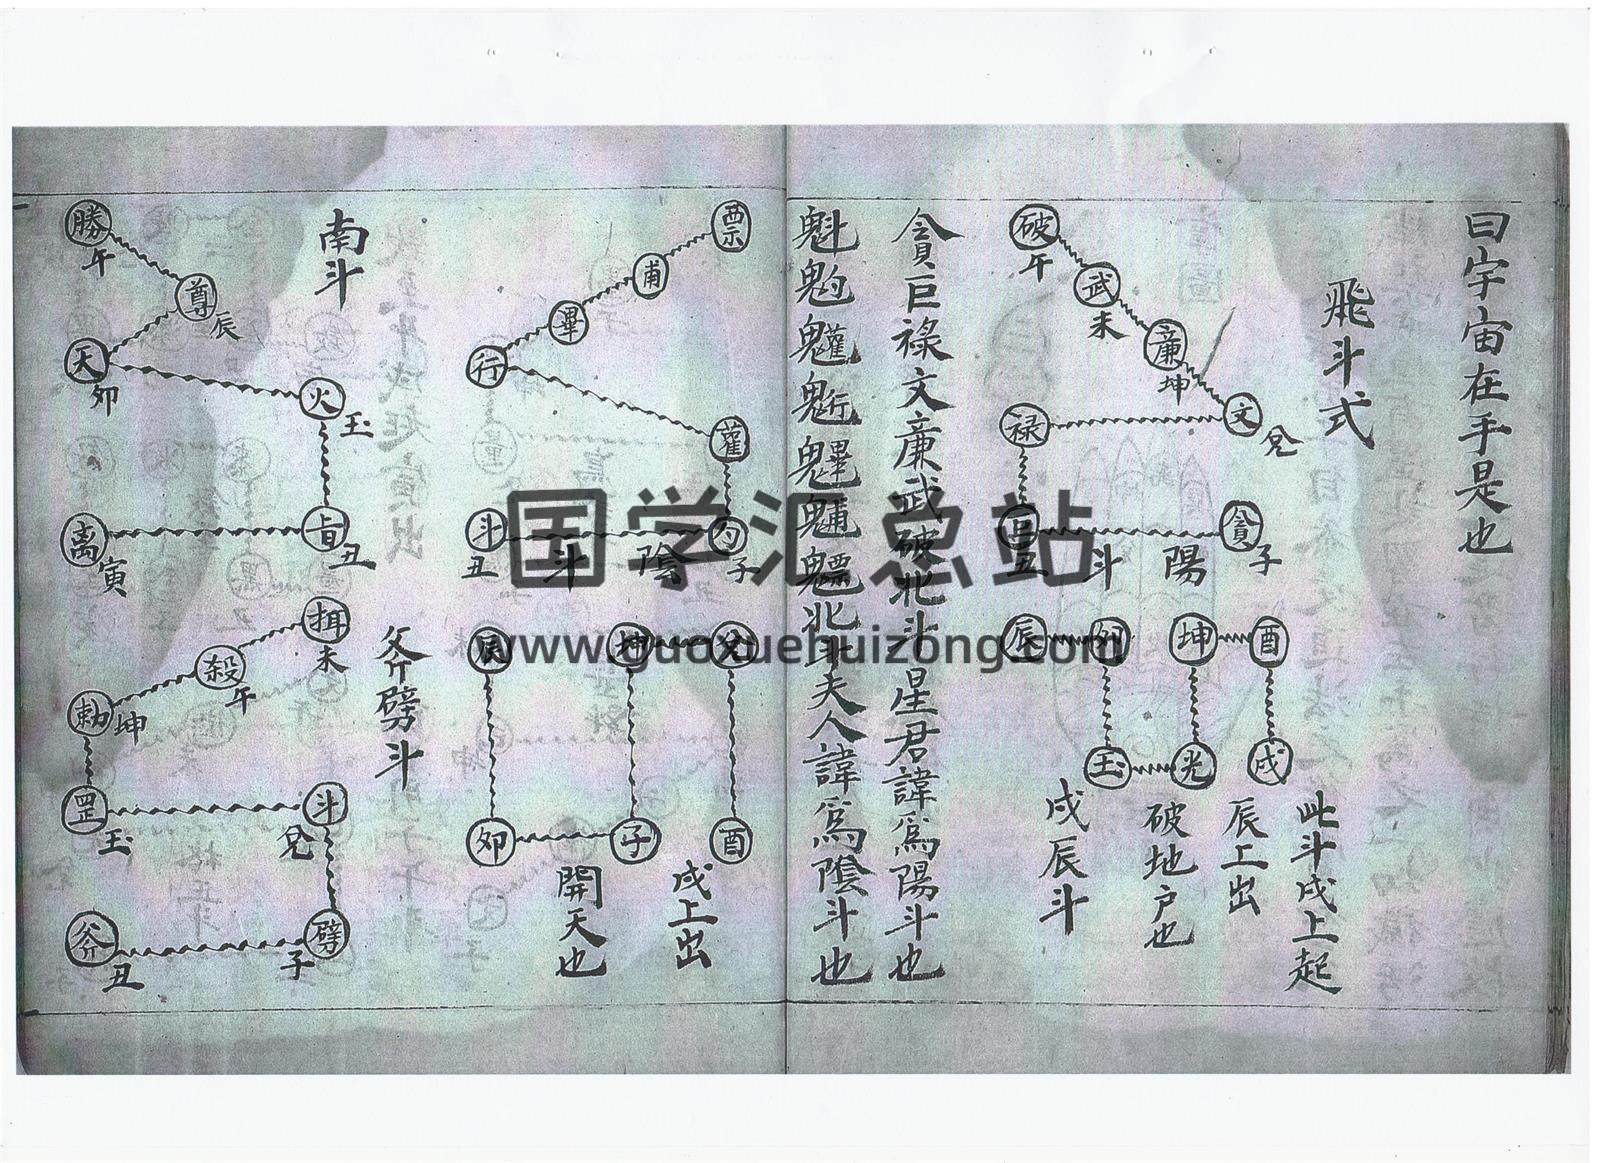 曰宇宙在手是也
飛斗式
破
午
武
未
廉
坤
文
兌
禄
巨
丑
貪
子
陽
斗
辰
卯
坤
酉
玉
光
戌
此斗戌上起
辰上出
破地户也
戌辰斗
貪巨禄文廉武破北斗星君諱爲陽斗也
魁𩲃魓北斗夫人諱爲陰斗也
票
甫
畢
行
雚
斗
丑
勺
子
陰
斗
辰
坤
戌
卯
子
酉
戌上出
開天也
南斗
勝
午
尊
辰
天
卯
火
玉
旨
丑
离
寅
斧劈斗
殺
午
未
勅
坤
罡
玉
斗
兌
劈
子
斧
丑
国学汇总站
www.guoxuehuizong.com